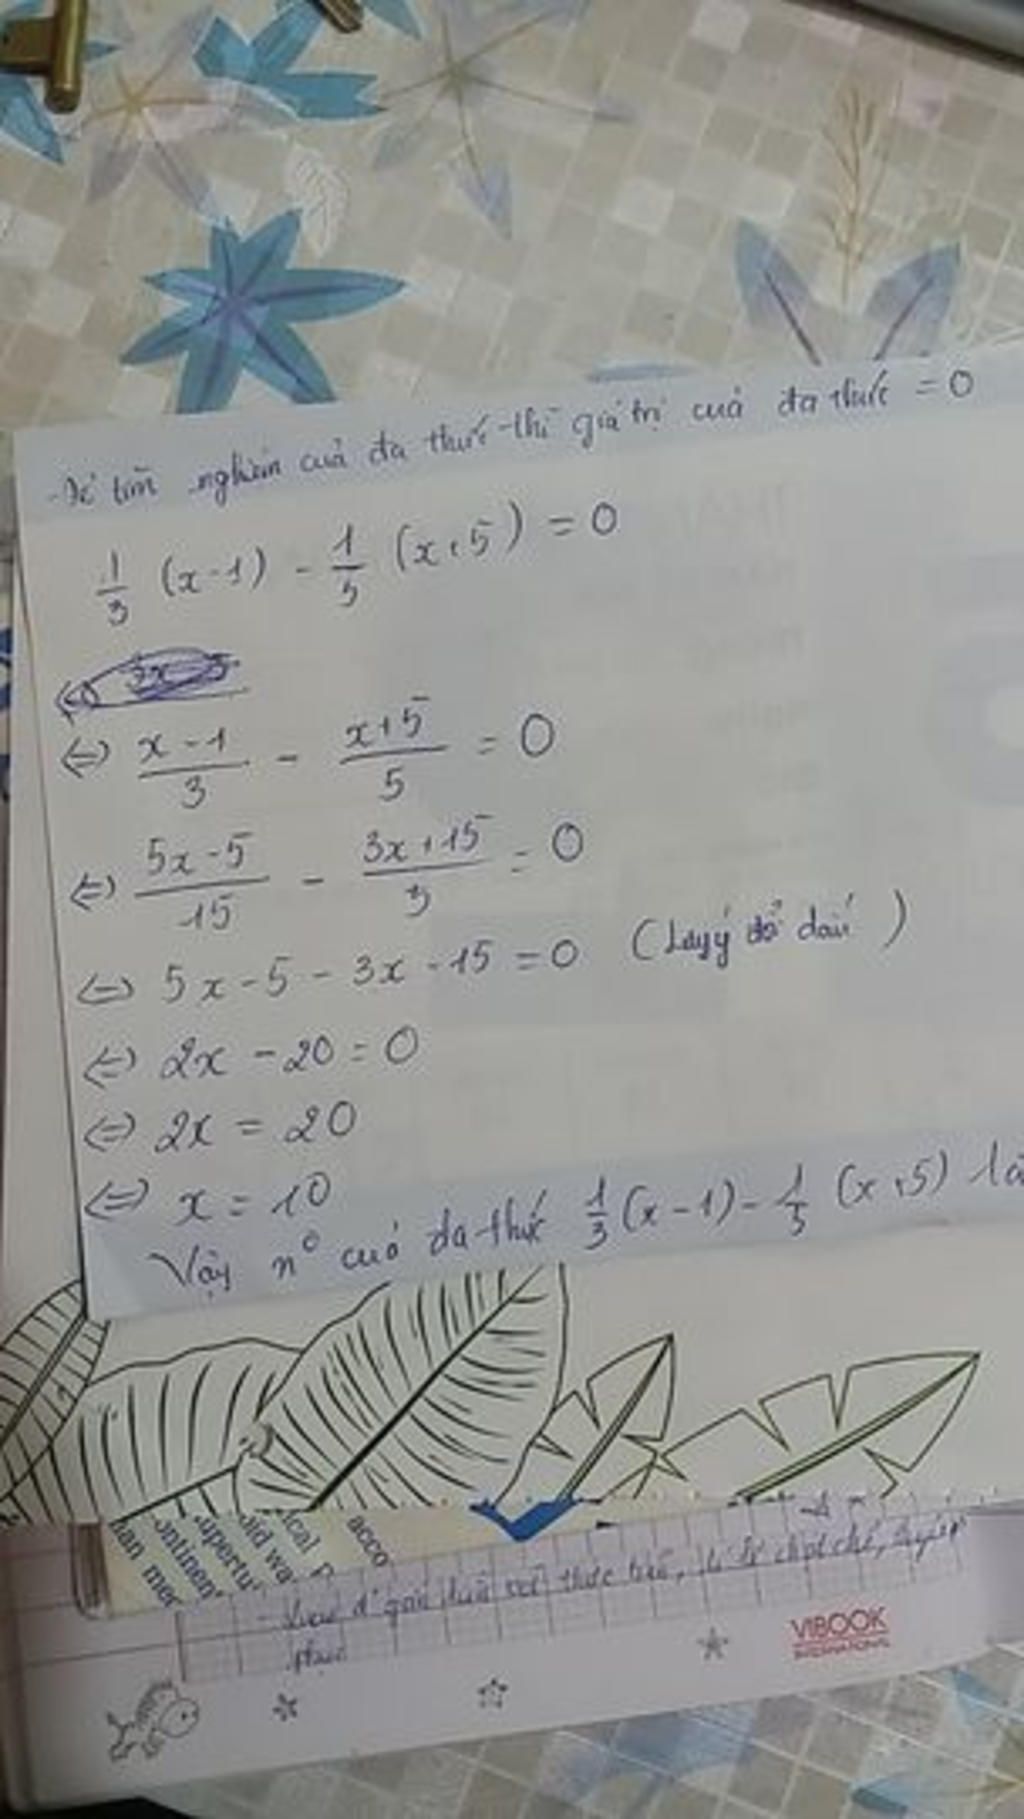 Để tìm nghiệm của đa thức thì giá trị của đa thức = 0
1/3 (x-1) - 1/5 (x+5) = 0
⇔ (x-1)/3 - (x+5)/5 = 0
⇔ (5x-5)/15 - (3x+15)/3 = 0
⇔ 5x-5 - 3x-15 = 0 (Lưu ý đổi dấu)
⇔ 2x - 20 = 0
⇔ 2x = 20
⇔ x = 10
Vậy n⁰ của đa thức 1/3 (x-1) - 1/5 (x+5) là
acco
ical
old wa
upertu
ontinen
han mer
thực
VIBOOK
INTERNATIONAL